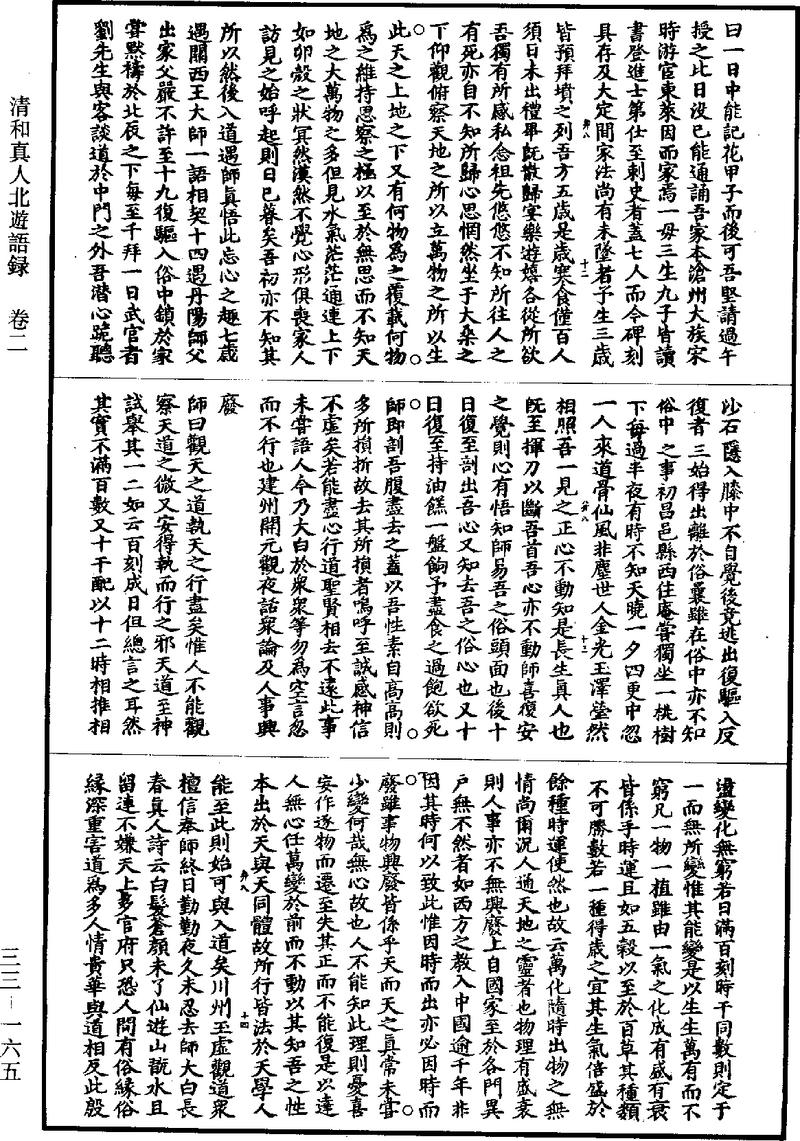 曰一日中能記花甲子而後可吾堅請過午
授之比日没已能通誦吾家本滄州大族宋
時游宦東萊因而家焉一母三生九子皆讀
書登進士第仕至刺史者蓋七人而今碑刻
具存及大定間家法尚有未墜者予生三歲
皆預拜墳之列吾方五歲是歲寒食僅百人
須日未出禮畢既散歸宴樂遊嬉各從所欲
吾獨有所感私念祖先悠悠不知所往人之
有死亦自不知所歸心思惘然坐于大桑之
下仰觀俯察天地之所以立萬物之所以生
此天之上地之下又有何物爲之覆載何物
爲之維持思察之極以至於無思而不知天
地之大萬物之多但見水氣茫茫通連上下
如卵殼之狀冥然漠然不覺心形俱喪家人
訪見之始呼起則日已暮矣吾初亦不知其
所以然後入道遇師真悟此忘心之趣七歲
遇關西王大師一語相契十四遇丹陽師父
出家父嚴不許至十九復驅入俗中鎖於家
嘗默禱於北辰之下每至千拜一日武官者
劉先生與客談道於中門之外吾潛心跪聽
沙石隱入膝中不自覺後竟逃出復驅入反
復者三始得出離於俗曩雖在俗中亦不知
俗中之事初昌邑縣西住庵嘗獨坐一桃樹
下每過半夜有時不知天曉一夕四更中忽
一人來道骨仙風非塵世人金光玉澤瑩然
相照吾一見之正心不動知是長生真人也
既至揮刀以斷吾首吾心亦不動師喜復安
之覺則心有悟知師易吾之俗頭面也後十
日復至剖出吾心又知去吾之俗心也又十
日復至持油餻一盤餉予盡食之過飽欲死
師即剖吾腹盡去之蓋以吾性素自高高則
多所損折故去其所損者嗚呼至誠感神信
不虚矣若能盡心行道聖賢相去不遠此事
未嘗語人今乃大白於衆衆等勿為空言忽
而不行也建州開元觀夜話衆論及人事興
廢
師曰觀天之道執天之行盡矣惟人不能觀
察天道之微又安得執而行之邪天道至神
試舉其一二如云百刻成日但總言之耳然
其實不滿百數又十干配以十二時相推相
盪變化無窮若日滿百刻時干同數則定于
一而無所變惟其能變是以生生萬有而不
窮凡一物一植雖由一氣之化成有盛有衰
皆係乎時運且如五穀以至於百草其種類
不可勝數若一種得歲之宜其生氣倍盛於
餘種時運使然也故云萬化隨時出物之無
情尚爾況人通天地之靈者也物理有盛衰
則人事亦不無興廢上自國家至於各門異
户無不然者如西方之教入中國逾千年非
因其時何以致此惟因時而出亦必因時而
廢雖事物興廢皆係乎天而天之真常未嘗
少變何哉無心故也人不能知此理則憂喜
妄作逐物而遷至失其正而不能復是以達
人無心任萬變於前而不動以其知吾之性
本出於天與天同體故所行皆法於天學人
能至此則始可與入道矣川州玉虚觀道衆
檀信奉師終日勤勤夜久未忍去師大白長
春真人詩云白髮蒼顔未了仙遊山翫水且
留連不嫌天上多官府只恐人間有俗緣俗
緣深重害道爲多人情貴華與道相反此殷
弁八
十二
弁八
十三
弁八
十四
清和真人北遊語録 卷二
三三-一六五